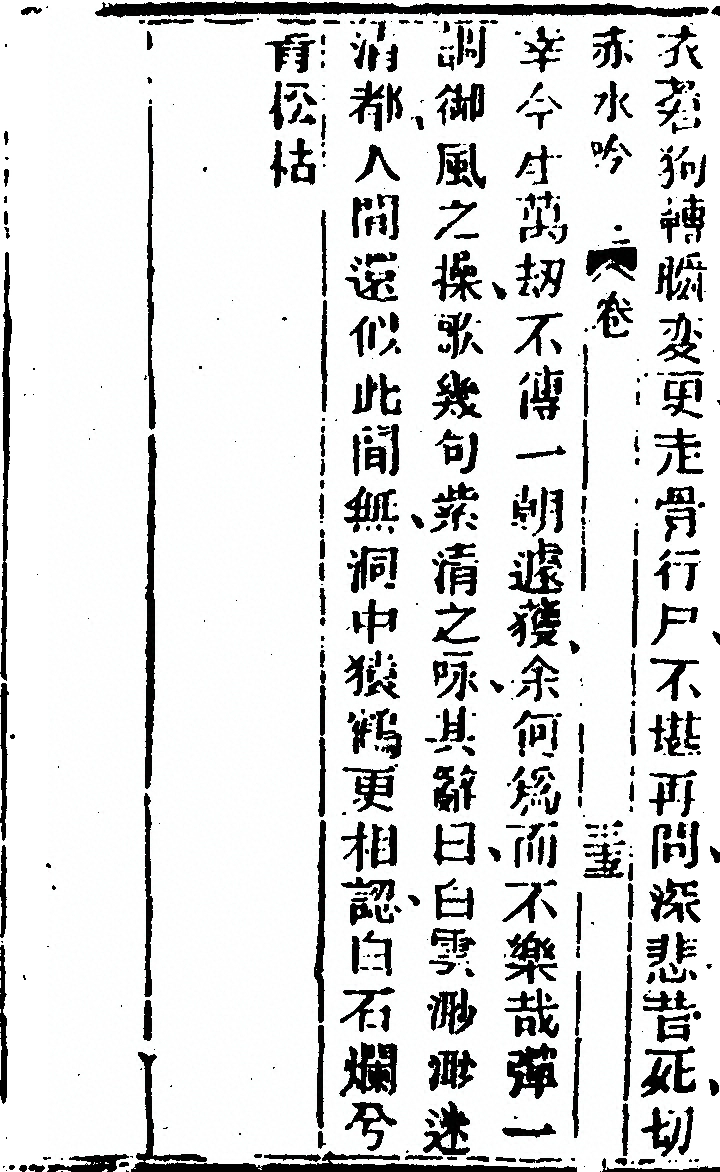 衣蒼狗轉瞬変更走骨行尸不堪再問深悲昔死切
赤水吟 卷 三五
幸今生萬劫不傳一朝遽獲余何為而不樂哉彈一
調御風之操歌幾句紫清之咏其辭曰白雲渺渺迷
清都人間還似此間無洞中猿鶴更相認白石爛兮
青松枯